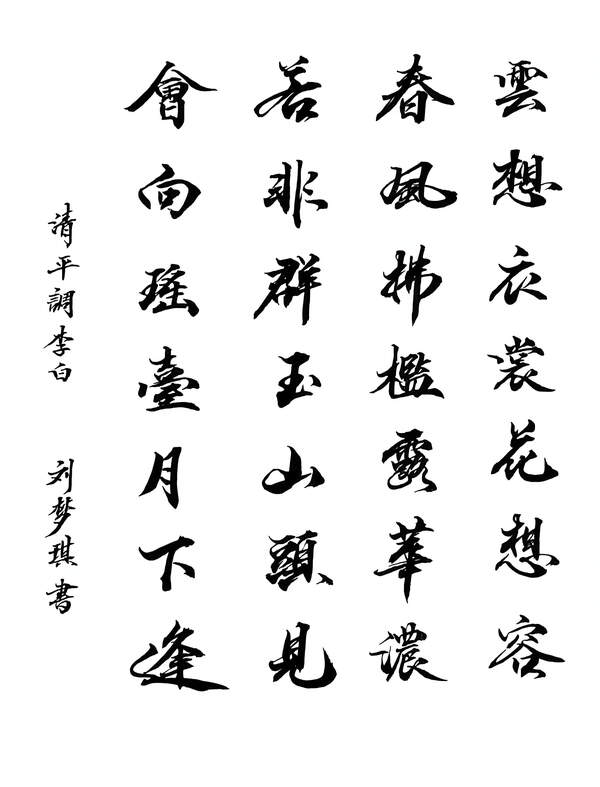 雲想衣裳花想容
春風拂檻露華濃
若非群玉山頭見
會向瑤臺月下逢
清平調李白
刘梦琪書